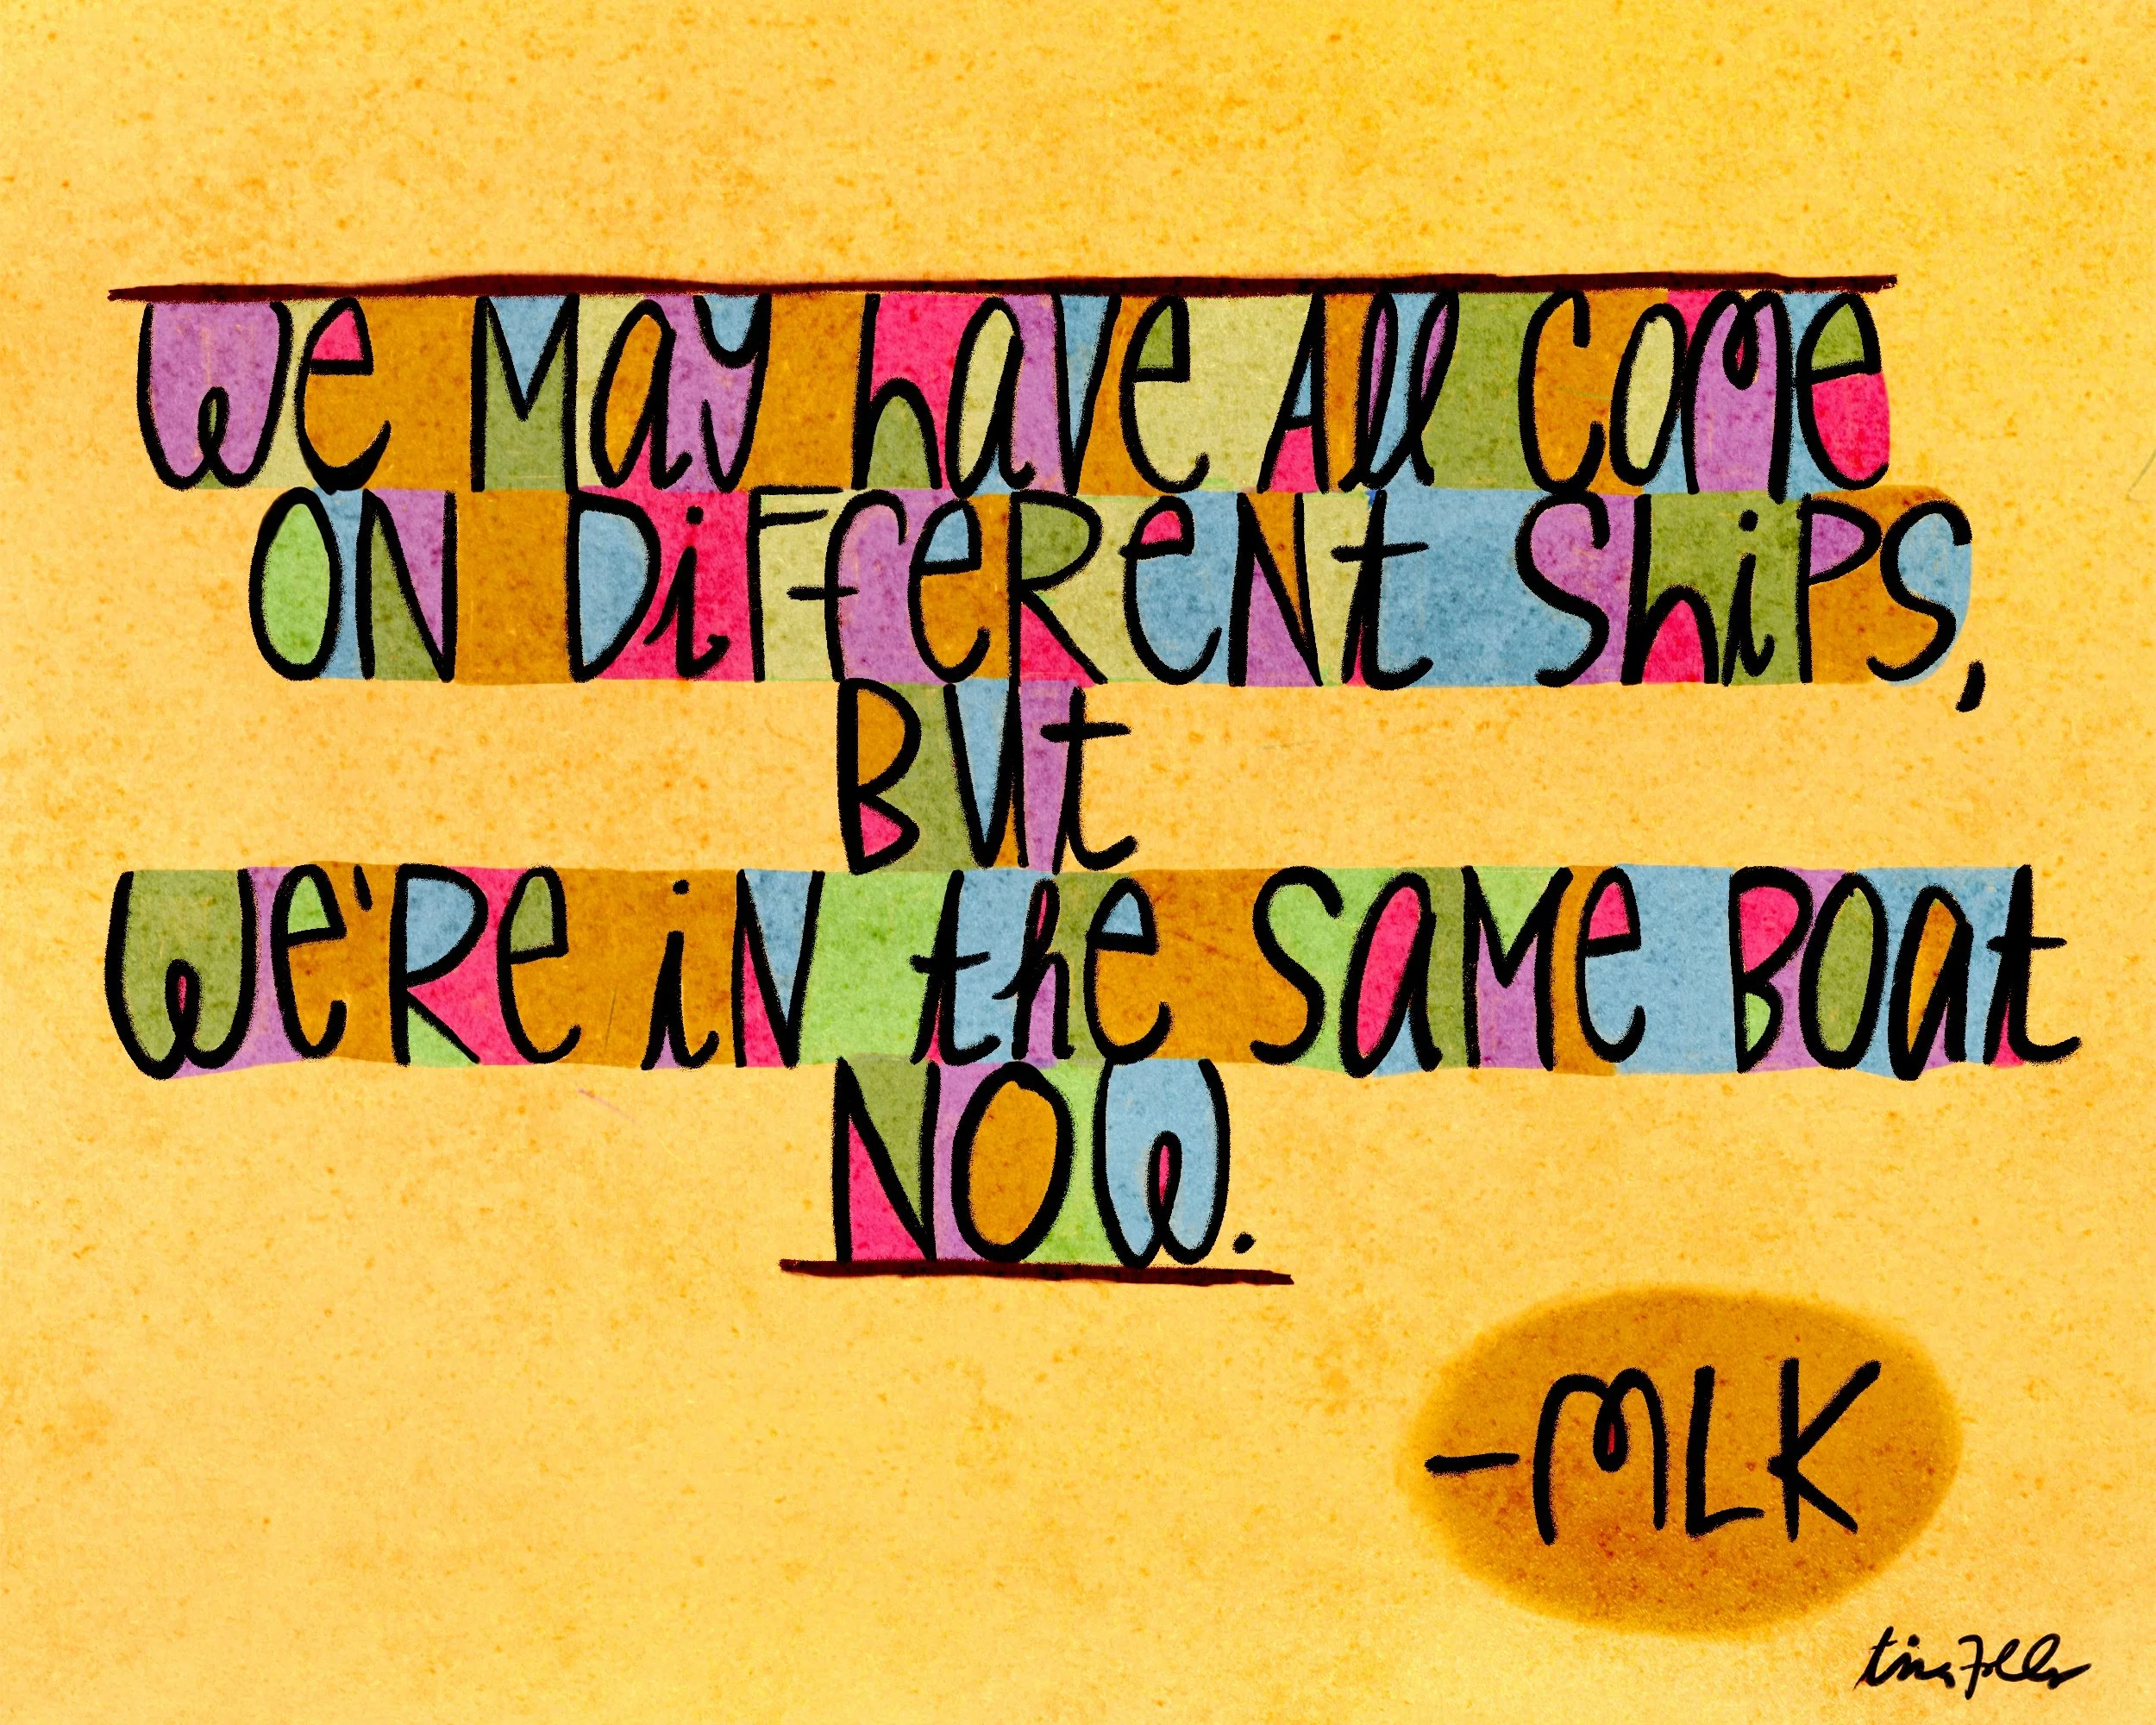 We May have All Come
ON DiFFeReNt ShiPS,
BUt
We'Re iN the SaMe BOat
NOW.
-MLK